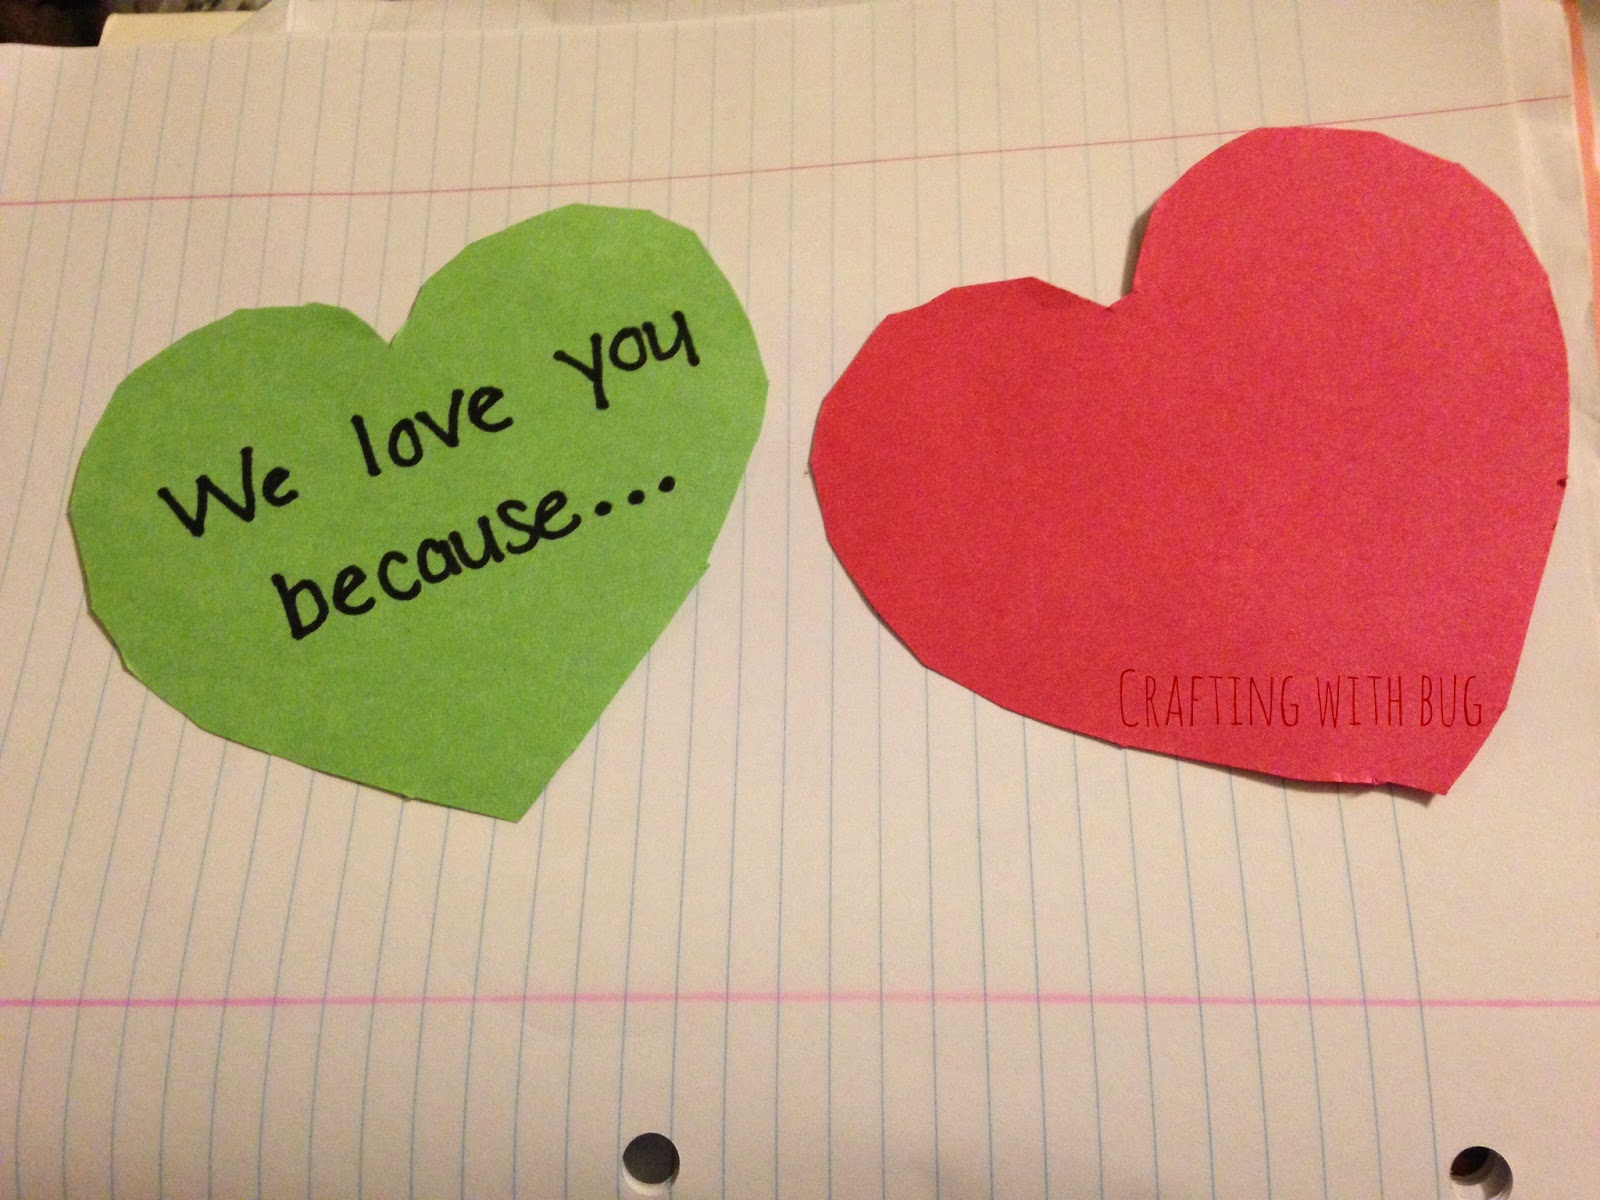 We love you
because...
Crafting with bug